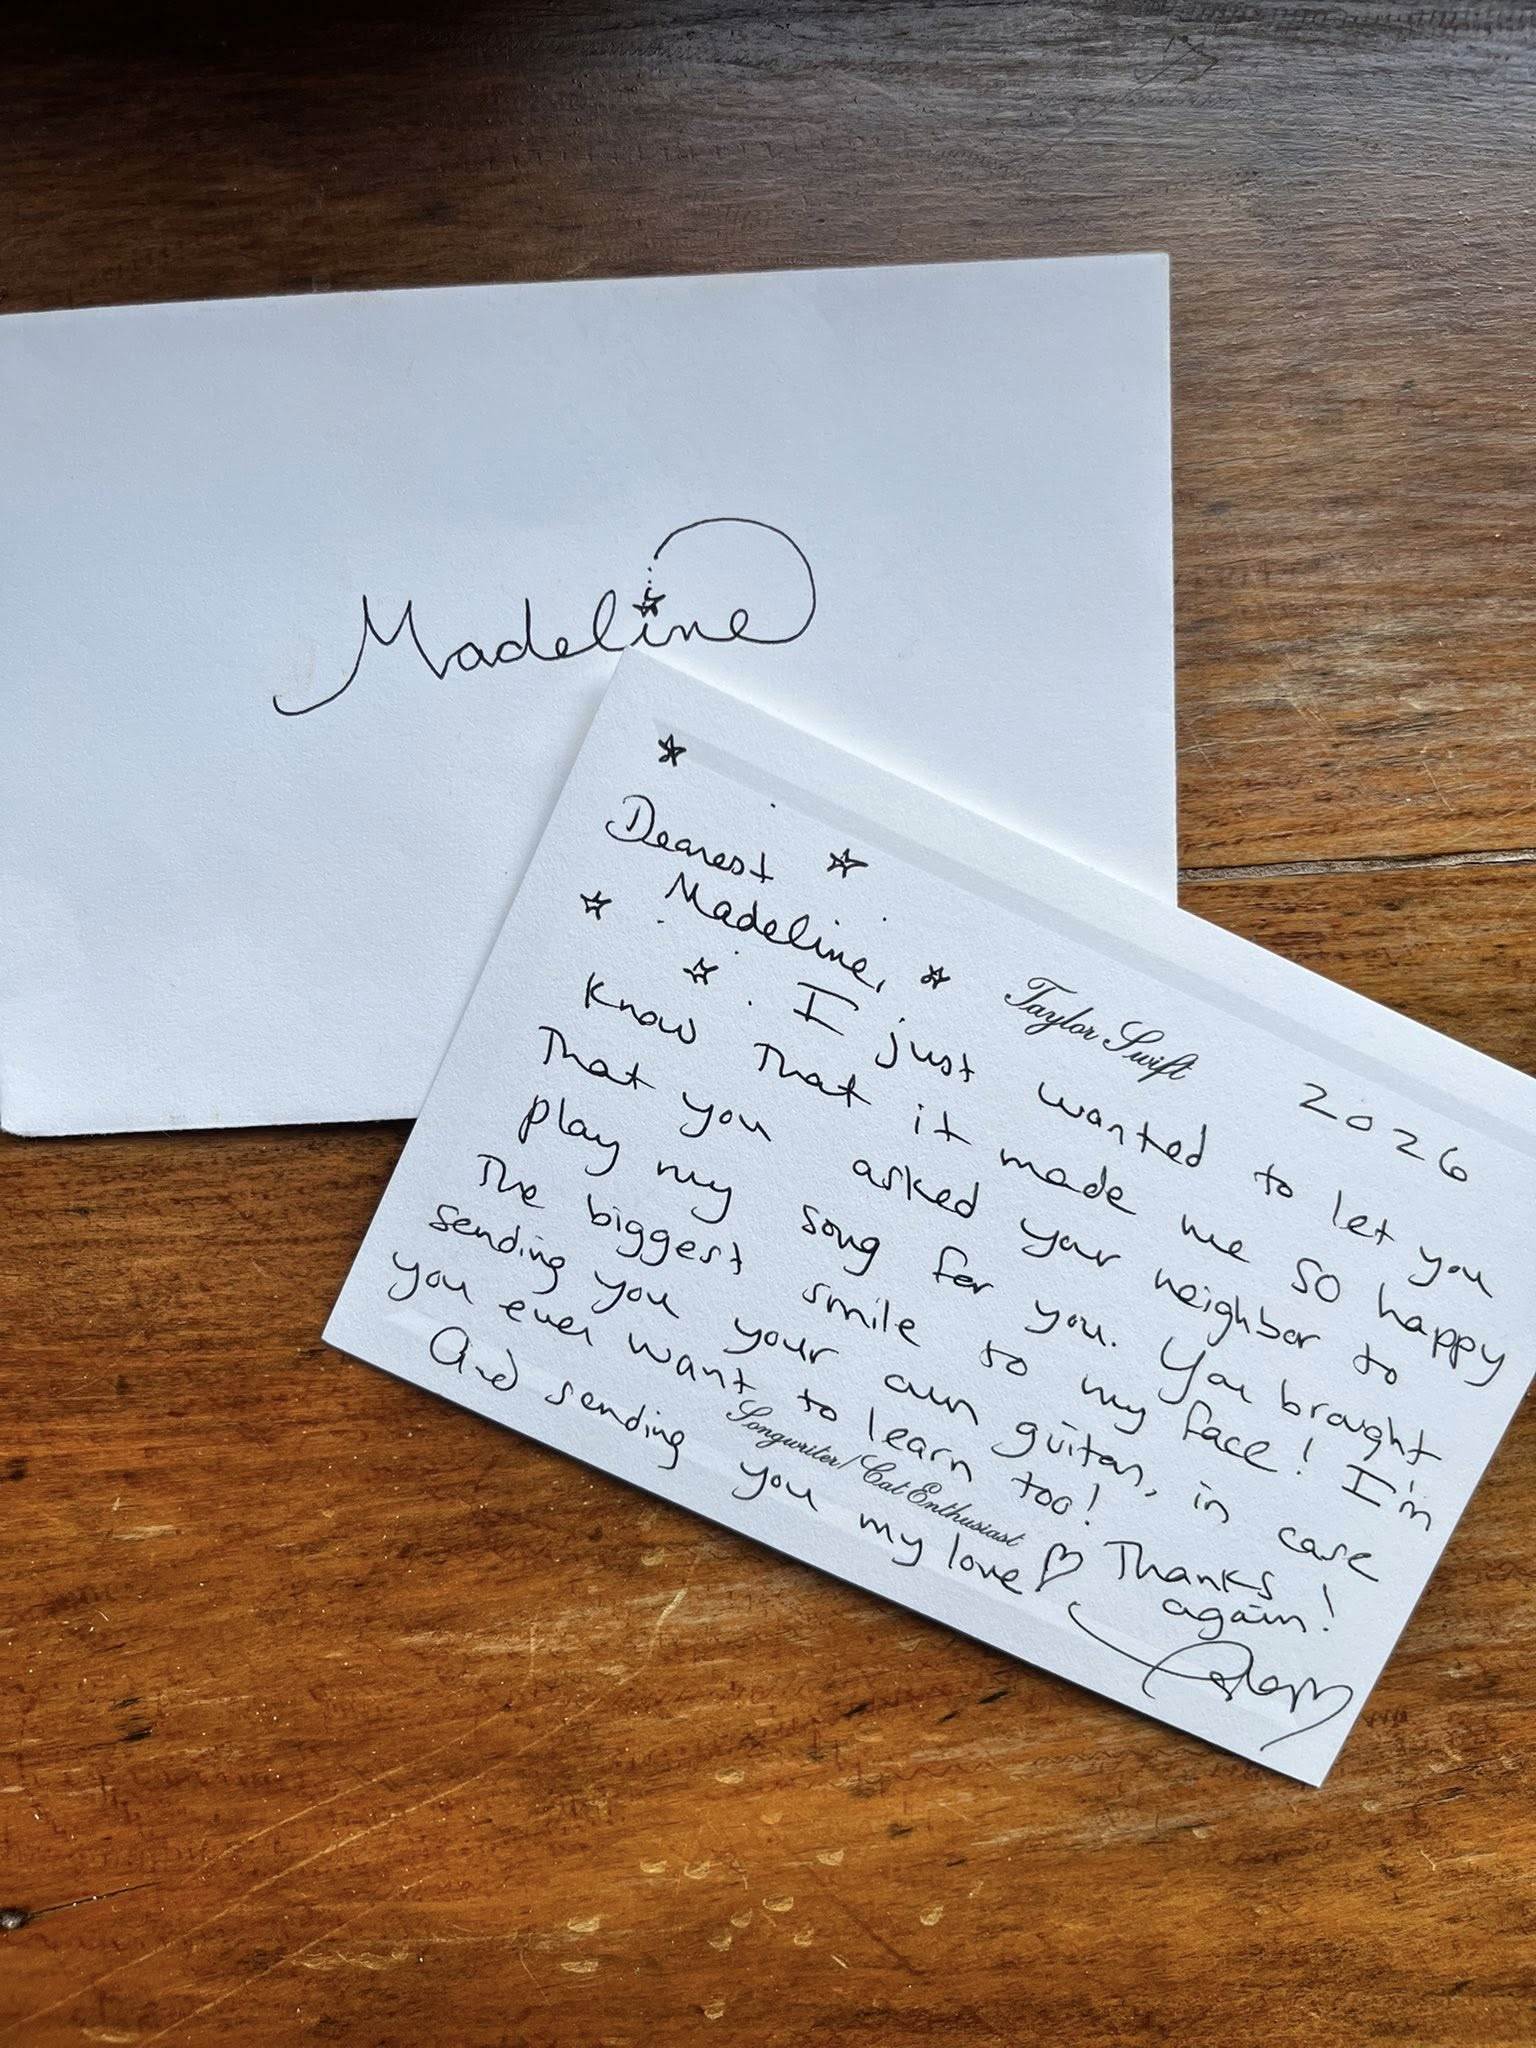 Madeline
Dearest
Madeline,
Taylor Swift
2026
I just wanted to let you
know that it made me so happy
that you asked your neighbor to
play my song for you. You brought
the biggest smile to my face! I'm
sending you your own guitar, in case
you ever want to learn too! Thanks
again!
Songwriter/Cat Enthusiast
And sending you my love